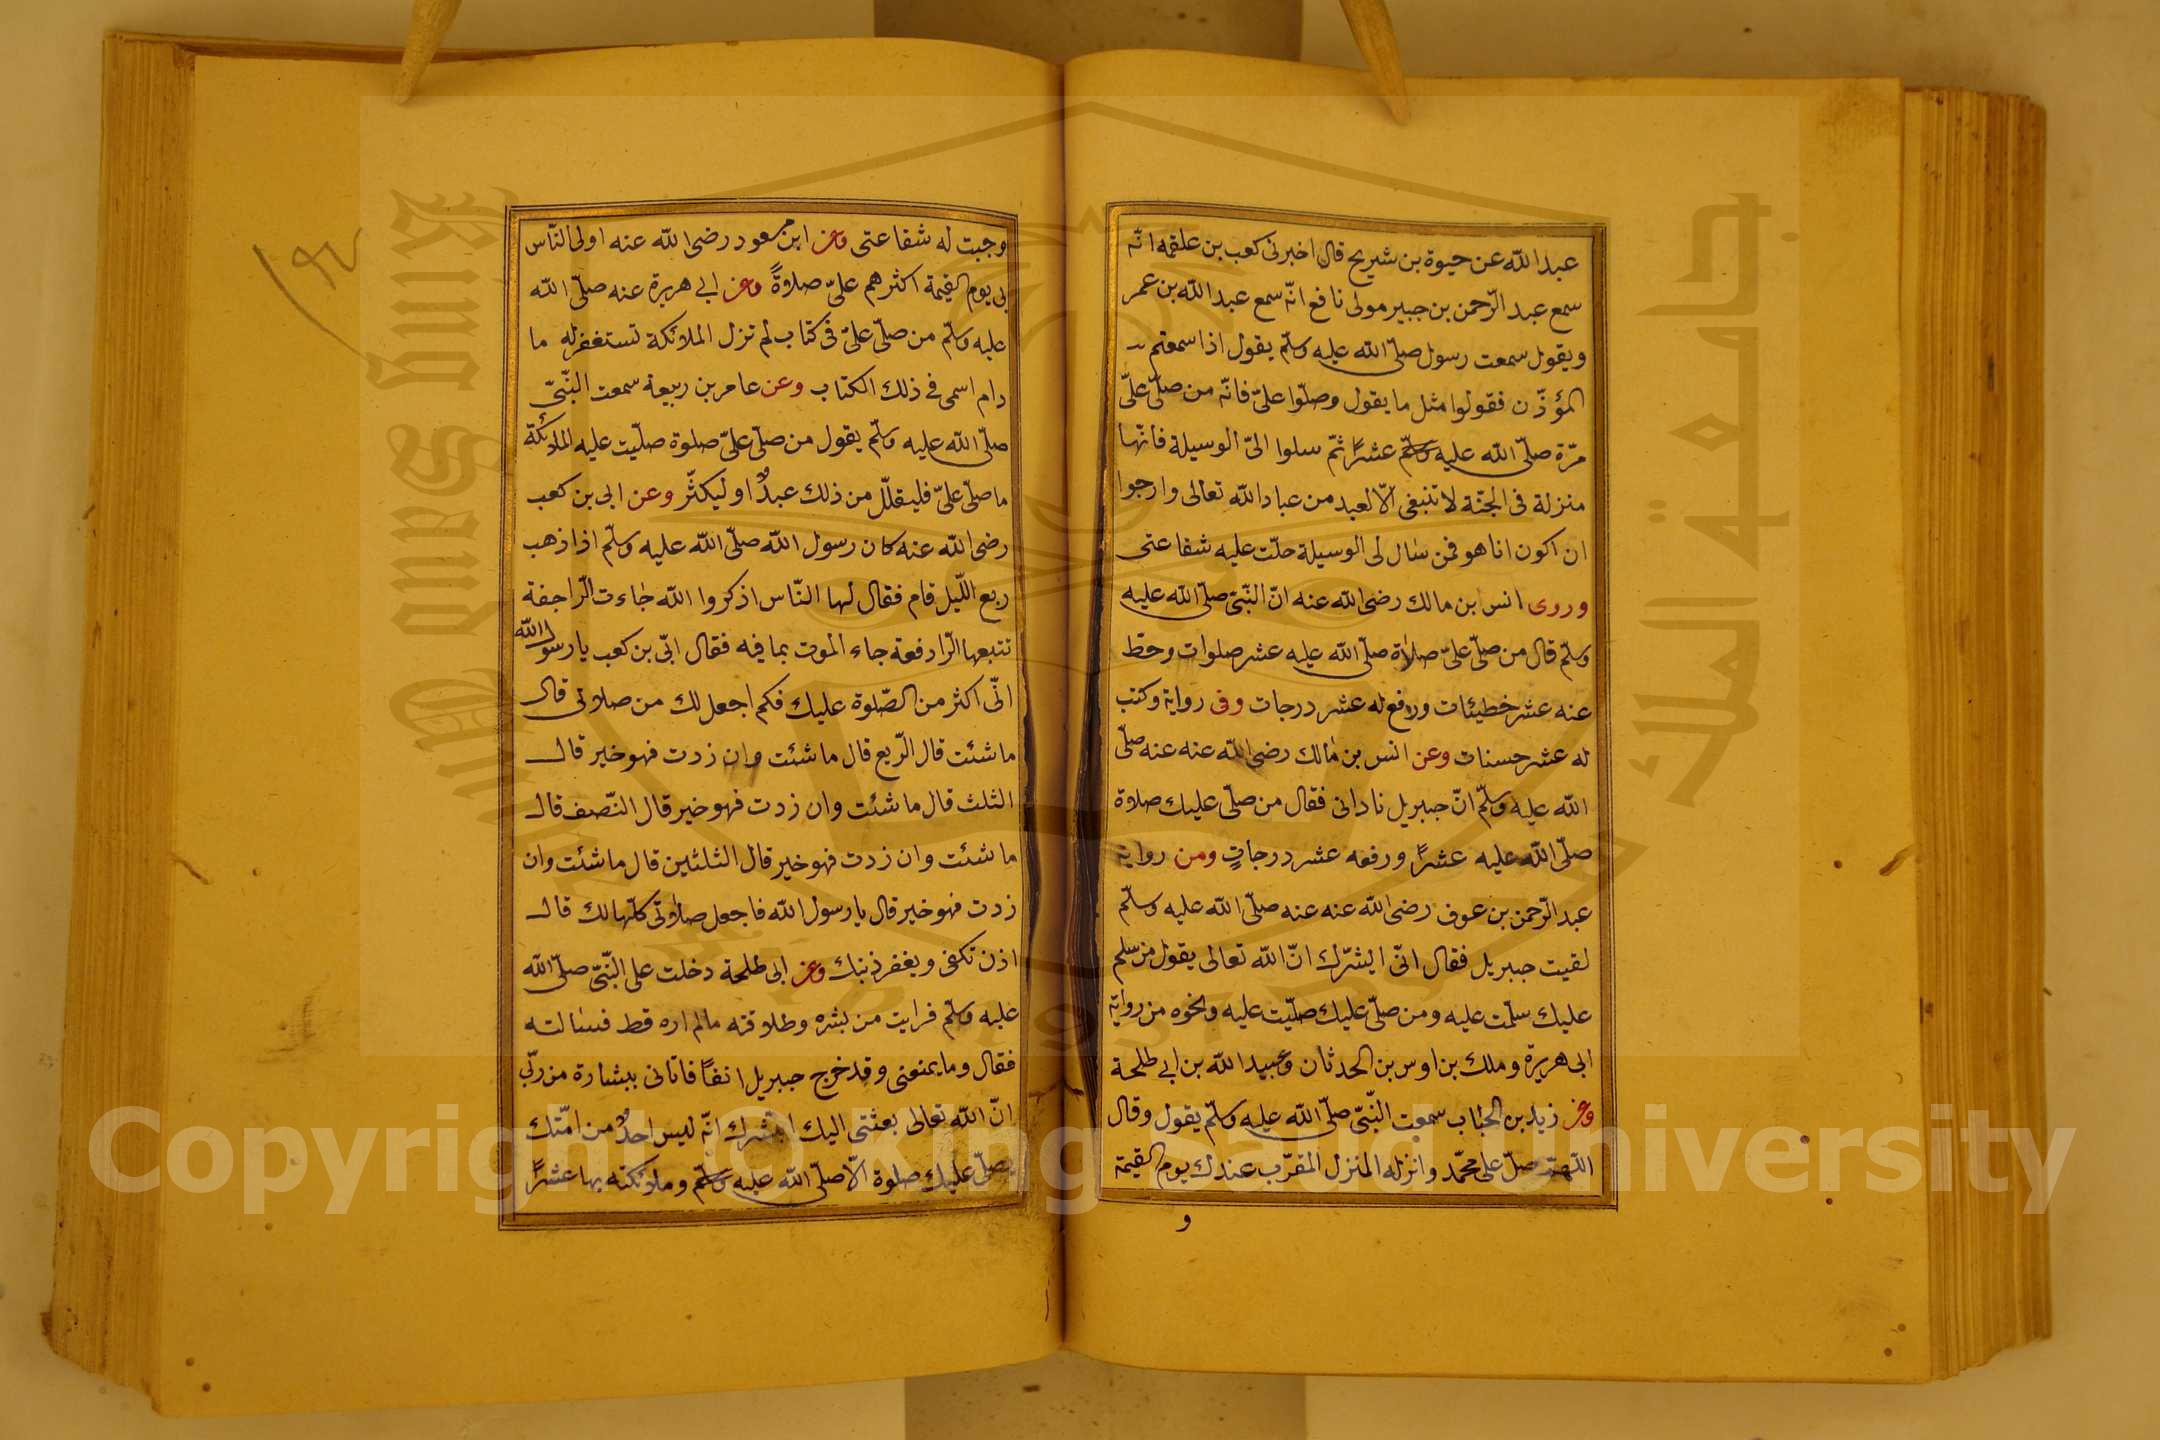 عبد الله عن حيوة بن شريح قال اخبرنى كعب بن علقمه انّه
سمع عبد الرّحمن بن جبير مولى نافع انّه سمع عبد الله بن عمر
ويقول سمعت رسول صلّى الله عليه وسلّم يقول اذا سمعتم
المؤذّن فقولوا مثل ما يقول وصلّوا علىّ فانّه من صلّى علىّ
مرّة صلّى الله عليه وسلّم عشرًا ثمّ سلوا الىّ الوسيلة فانّها
منزلة فى الجنّة لا تنبغى الّا لعبد من عباد الله تعالى وارجوا
ان اكون انا هو فمن سال لى الوسيلة حلّت عليه شفاعتى
وروى انس بن مالك رضى الله عنه انّ النّبىّ صلّى الله عليه
وسلّم قال من صلّى علىّ صلاة صلّى الله عليه عشر صلوات وحطّ
عنه عشر خطيئات ورفع له عشر درجات وفى رواية وكتب
له عشر حسنات وعن انس بن مالك رضى الله عنه عنه صلّى
الله عليه وسلّم انّ جبريل نادانى فقال من صلّى عليك صلاة
صلّى الله عليه عشرًا ورفعه عشر درجاتٍ ومن رواية
عبد الرّحمن بن عوف رضى الله عنه عنه صلّى الله عليه وسلّم
لقيت جبريل فقال انّى ابشّرك انّ الله تعالى يقول من سلم
عليك سلّمت عليه ومن صلّى عليك صلّيت عليه ونحوه من رواية
ابى هريرة وملك بن اوس بن الحدثان وعبيد الله بن ابى طلحة
وعن زيد بن الحباب سمعت النّبىّ صلّى الله عليه وسلّم يقول وقال
اللّهمّ صلّ على محمّد وانزله المنزل المقرّب عندك يوم القيمة
و
وجبت له شفاعتى وعن ابن مسعود رضى الله عنه اولى النّاس
بى يوم القيمة اكثرهم علىّ صلاةً وعن ابى هريرة عنه صلّى الله
عليه وسلّم من صلّى علىّ فى كتاب لم تزل الملائكة تستغفر له ما
دام اسمى فى ذلك الكتاب وعن عامر بن ربيعة سمعت النّبىّ
صلّى الله عليه وسلّم يقول من صلّى علىّ صلوة صلّيت عليه الملائكة
ما صلّى علىّ فليقلّل من ذلك عبدٌ او ليكثّر وعن ابى بن كعب
رضى الله عنه كان رسول الله صلّى الله عليه وسلّم اذا ذهب
ربع اللّيل قام فقال ايها النّاس اذكروا الله جاءت الرّاجفة
تتبعها الرّادفة جاء الموت بما فيه فقال ابىّ بن كعب يا رسول الله
انّى اكثر من الصّلوة عليك فكم اجعل لك من صلاتى قال
ما شئت قال الرّبع قال ما شئت وان زدت فهو خير قال
الثلث قال ما شئت وان زدت فهو خير قال النّصف قال
ما شئت وان زدت فهو خير قال الثلثين قال ما شئت وان
زدت فهو خير قال يا رسول الله فاجعل صلاتى كلّها لك قال
اذن تكفى ويغفر ذنبك وعن ابى طلحة دخلت على النّبىّ صلّى الله
عليه وسلّم فرايت من بشره وطلاقته مالم اره قط فسالته
فقال وما يمنعنى وقد خرج جبريل انفًا فاتانى ببشارة من ربّى
انّ الله تعالى بعثنى اليك ابشّرك انّه ليس احدٌ من امّتك
يصلّى عليك صلوة الّا صلّى الله عليه وسلّم وملائكته بها عشرًا
King Saud University
جامعة الملك سعود
1957
Copyright © King Saud University